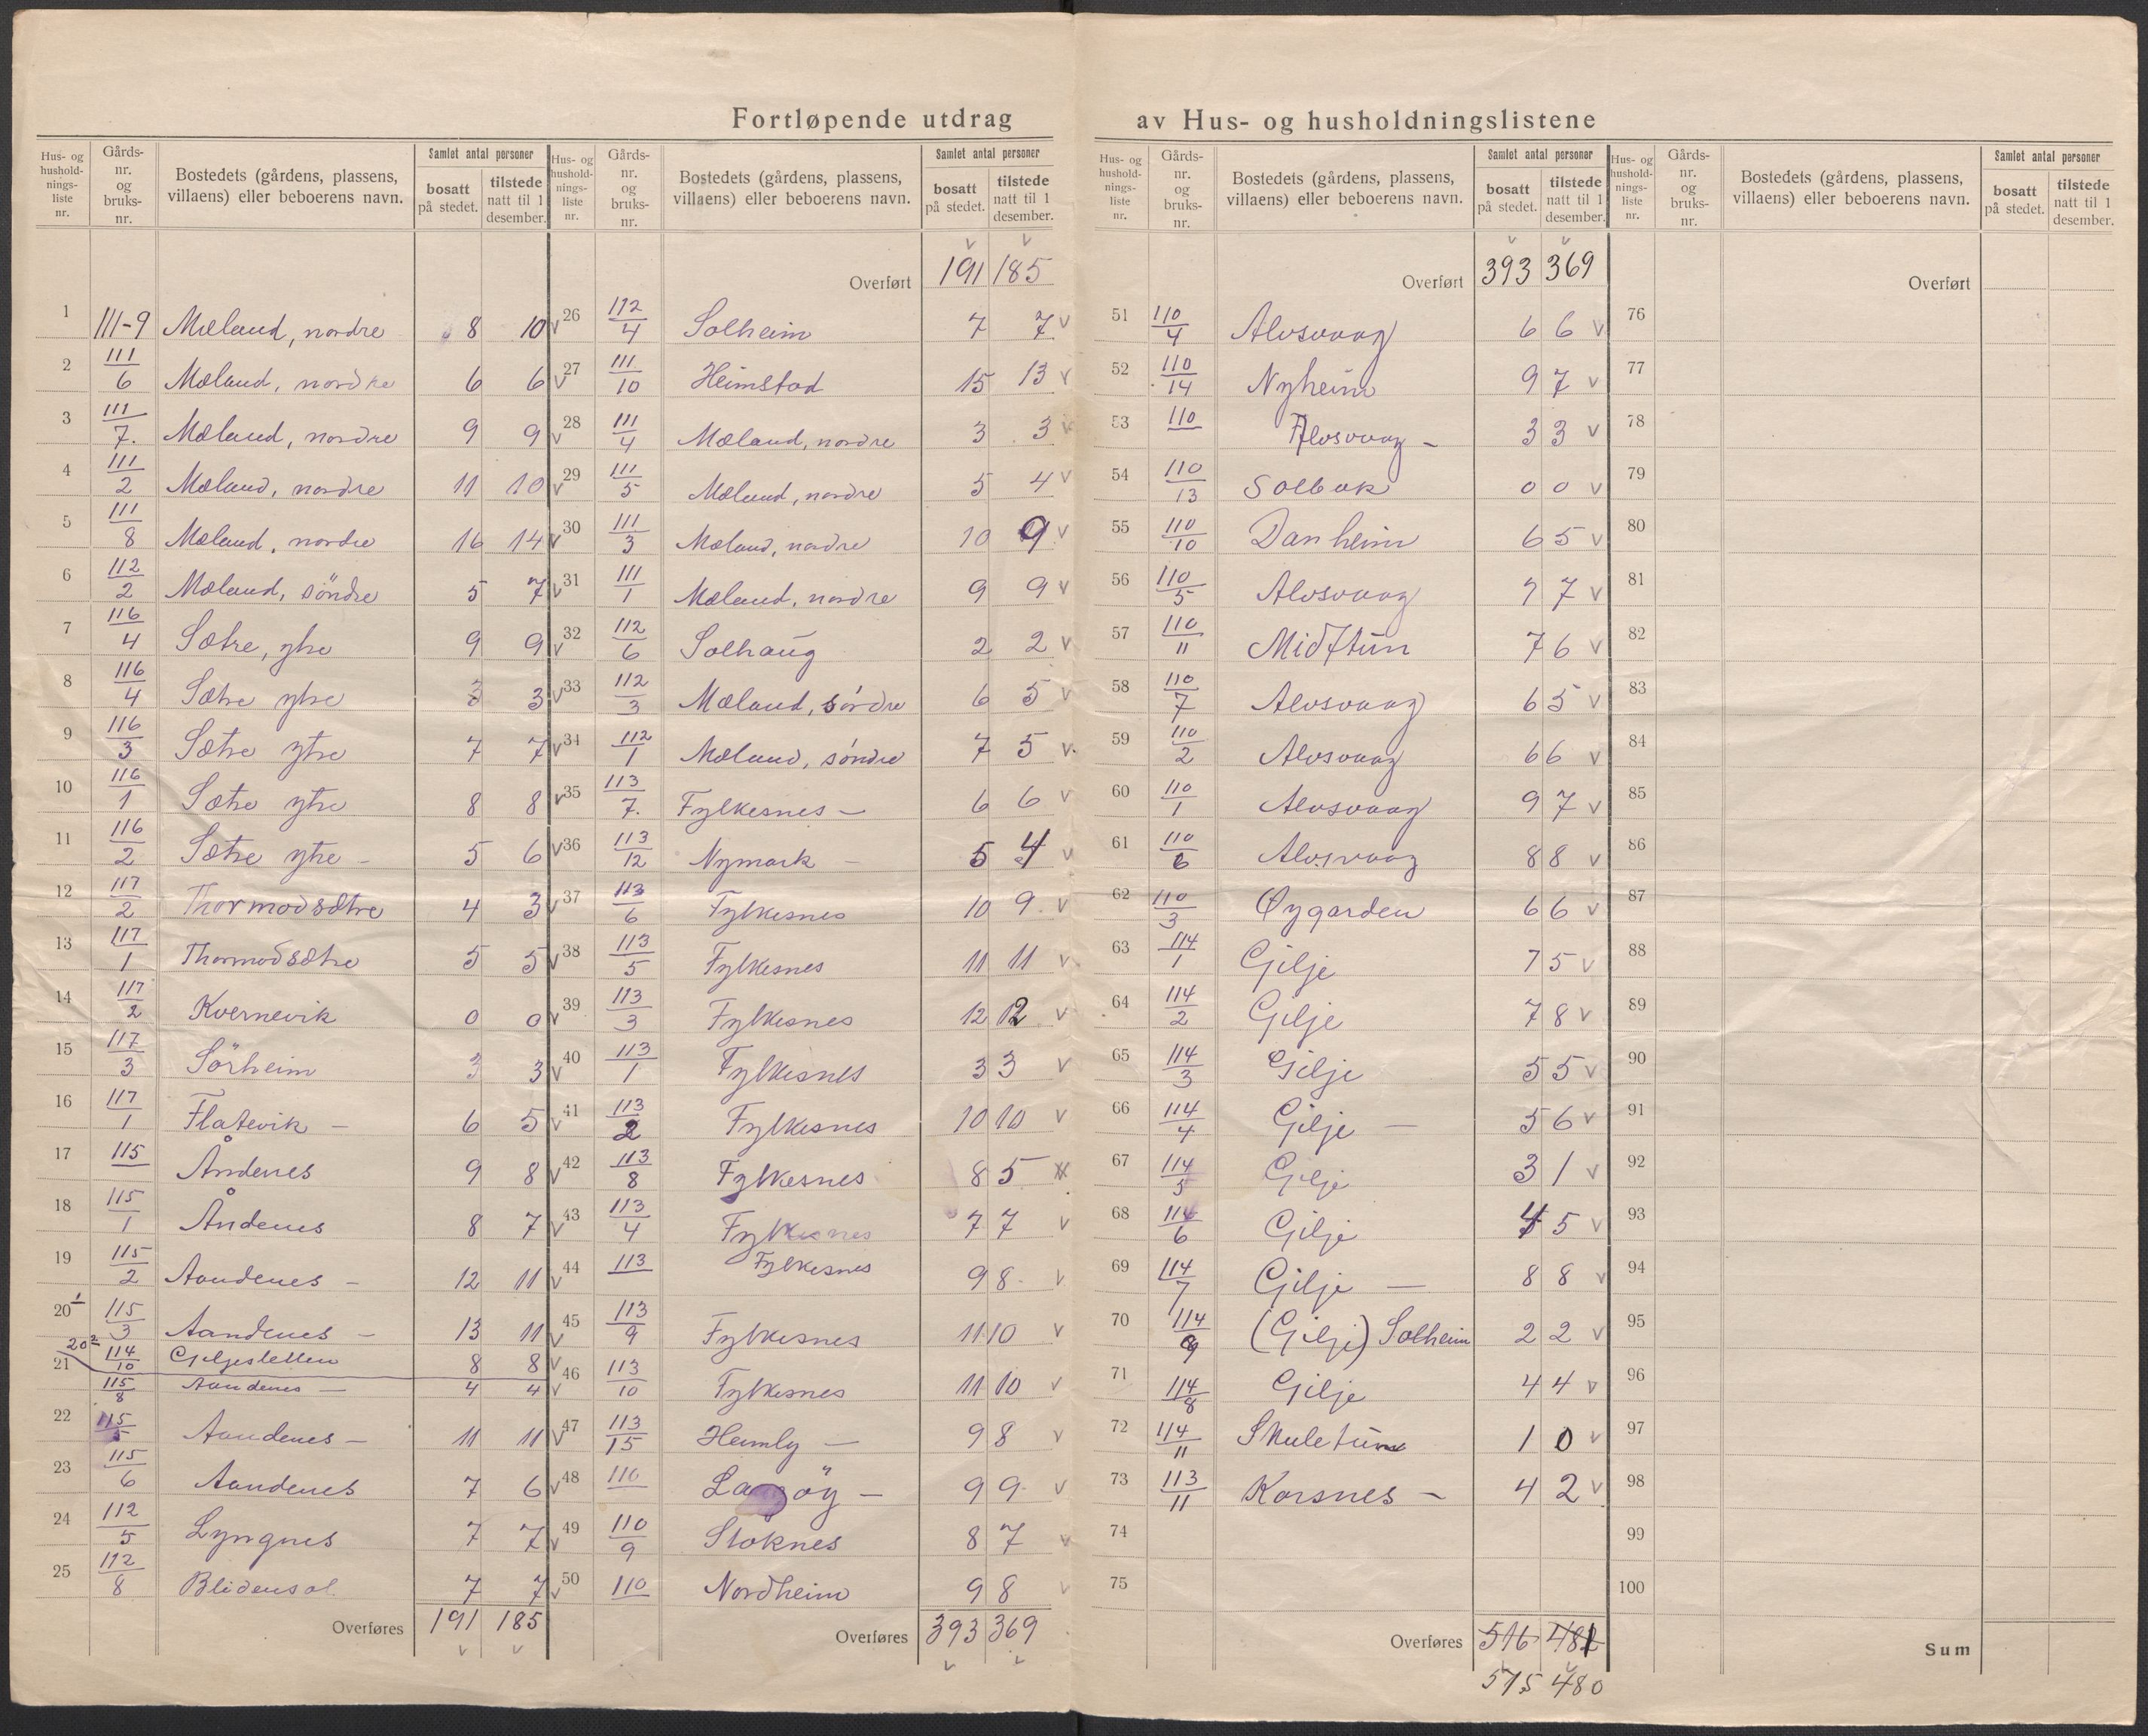 Fortløpende utdrag av Hus- og husholdningslistene
Hus- og hushold-nings-liste nr. Gårds-nr. og bruks-nr. Bostedets (gårdens, plassens, villaens) eller beboerens navn. Samlet antal personer bosatt på stedet. tilstede natt til 1 desember.
1 111-9 Mæland, nordre 8 10 v
2 111/6 Mæland, nordre 6 6 v
3 111/7. Mæland, nordre 9 9 v
4 111/2 Mæland, nordre 11 10 v
5 111/8 Mæland, nordre 16 14 v
6 112/2 Mæland, söndre 5 7 v
7 116/4 Sætre, ytre 9 9 v
8 116/4 Sætre ytre 3 3 v
9 116/3 Sætre ytre 7 7 v
10 116/1 Sætre ytre 8 8 v
11 116/2 Sætre ytre - 5 6 v
12 117/2 Thormodsætre 4 3 v
13 117/1 Thormodsætre 5 5 v
14 117/2 Kvernevik 0 0 v
15 117/3 Sörheim 3 3 v
16 117/1 Flatevik - 6 5 v
17 115 Åndenes 9 8 v
18 115/1 Åndenes 8 7 v
19 115/2 Aandenes - 12 11 v
20¹ 115/3 Aandenes - 13 11 v
20² 114/10 Giljesletten 8 8 v
21 115/8 Aandenes - 4 4 v
22 115/5 Aandenes - 11 11 v
23 115/6 Aandenes 7 6 v
24 112/5 Lyngnes 7 7 v
25 112/8 Blidensol. 7 7 v
Overføres 191 185
v v
Hus- og hushold-nings-liste nr. Gårds-nr. og bruks-nr. Bostedets (gårdens, plassens, villaens) eller beboerens navn. Samlet antal personer bosatt på stedet. tilstede natt til 1 desember.
v v
Overført 191 185
26 112/4 Solheim 7 7 v
27 111/10 Heimstad 15 13 v
28 111/4 Mæland, nordre 3 3 v
29 111/5 Mæland, nordre 5 4 v
30 111/3 Mæland, nordre 10 9 v
31 111/1 Mæland, nordre 9 9 v
32 112/6 Solhaug 2 2 v
33 112/3 Mæland, söndre 6 5 v
34 112/1 Mæland, söndre 7 5 v.
35 113/7. Fylkesnes - 6 6 v
36 113/12 Nymark - 5 4 v
37 113/6 Fylkesnes 10 9 v
38 113/5 Fylkesnes 11 11 v
39 113/3 Fylkesnes 12 12 v
40 113/1 Fylkesnes 3 3 v
41 113/2 Fylkesnes 10 10 v
42 113/8 Fylkesnes 8 5
43 113/4 Fylkesnes 7 7 v
44 113 Fylkesnes 9 8 v
45 113/9 Fylkesnes 11 10 v
46 113/10 Fylkesnes 11 10 v
47 113/15 Hemly - 9 8 v
48 110 9 9 v
49 110/9 Stoknes 8 7 v
50 110 Nordheim 9 8 v
Overføres 393 369
v v
Hus- og hushold-nings-liste nr. Gårds-nr. og bruks-nr. Bostedets (gårdens, plassens, villaens) eller beboerens navn. Samlet antal personer bosatt på stedet. tilstede natt til 1 desember.
v v
Overført 393 369
51 110/4 Alvsvaag 6 6 v
52 110/14 Nyheim 9 7 v
53 110 Alvsvaag - 3 3 v
54 110/13 Solbak 0 0 v
55 110/10 Danheim 6 5 v
56 110/5 Alvsvaag 7 7 v
57 110/11 Midttun 7 6 v
58 110/7 Alvsvaag 6 5 v
59 110/2 Alvsvaag 6 6 v
60 110/1 Alvsvaag 9 7 v
61 110/6 Alvsvaag 8 8 v
62 110/3 Øygarden 6 6 v
63 114/1 Gilje 7 5 v
64 114/2 Gilje 7 8 v
65 114/3 Gilje 5 5 v
66 114/4 Gilje - 5 6 v
67 114/5 Gilje 3 1 v
68 114/6 Gilje 4 5 v
69 114/7 Gilje - 8 8 v
70 114/9 (Gilje) Solheim 2 2 v
71 114/8 Gilje 4 4 v
72 114/11 Skuletun 1 0 v
73 113/11 Korsnes - 4 2 v
74
75
Overføres 516 481
515 480
Hus- og hushold-nings-liste nr. Gårds-nr. og bruks-nr. Bostedets (gårdens, plassens, villaens) eller beboerens navn. Samlet antal personer bosatt på stedet. tilstede natt til 1 desember.
Overført
76
77
78
79
80
81
82
83
84
85
86
87
88
89
90
91
92
93
94
95
96
97
98
99
100
Sum